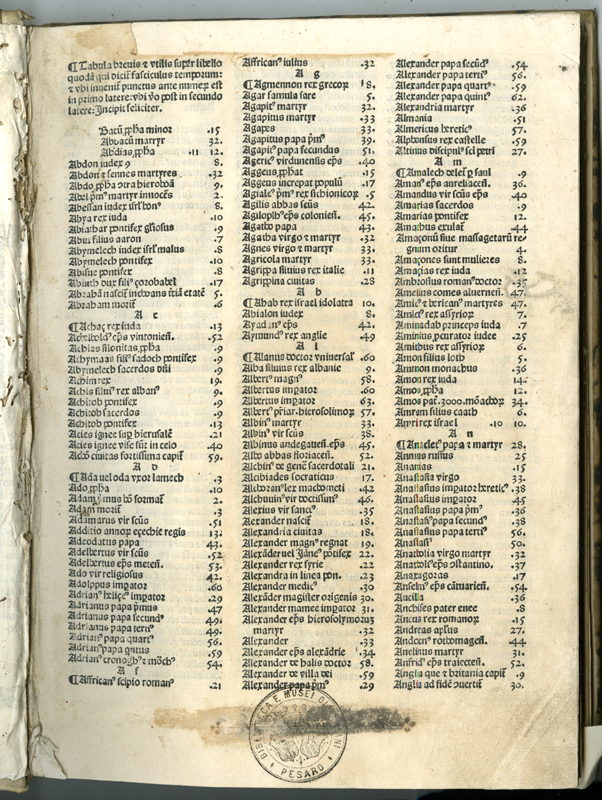 ¶Tabula breuis ⁊ vtilis suꝑ libello
quodā qui dicit᷑ fasciculus temporum:
⁊ vbi inuenit᷑ punctus ante numeꝝ est
in primo latere: vbi v̄o post in secundo
latere: Incipit feliciter.
Bacuꝰ ꝓpha minor .15
Abbacū martyr 32.
Abdias ꝓpha .11 12.
Abdon iudex 9 8.
Abdon ⁊ sennes martyres .32
Abdo ꝓpha ꝯtra hieroboā 9.
Abel pmꝰ martyr innocēs 2.
Abessan iudex isrl'
Abya rex iuda .10
Abiathar pontifex gl'iosus .9
Abiu filius aaron .7
Abymelech iudex isrl' malus .8
Abymelech pontifex .10
Abisue pontifex .8
Abiuth dux filiꝰ ꝫorobabel .17
Abrahā nascit᷑ inchoans t̄tiā etatē 5.
Abraham morit᷑ .6
A c
¶Achaꝫ rex iuda .13
Achilboldꝰ ep̄s vintonieñ. .52
Achias silonitas ꝓpha .9
Achymaas filiꝰ sadoch pontifex .9
Abymelech sacerdos dñi .9
Achim rex 19.
Achis filiusꝰ rex albanꝰ 9.
Achitob pontifex .9
Achitob sacerdos .9
Achitob pontifex .13
Acies ignee sup hierusalē .21
Acies ignee vise sūt in celo .40
Achō ciuitas fortissima capit᷑ 59.
A d
¶Ada uel oda vxor lamech .3
Ado ꝓpha .10
Adam pmus hō format᷑ 2.
Adam morit᷑ .3
Adamarus vir scūs .51
Additio annoꝝ eꝫechie regis 13.
Adeodatus papa 43.
Adelbertus vir scūs .52
Adelbertus ep̄s meteñ. 53.
Ado vir religiosus 42.
Adolphus impator .60
Adrianꝰ helizcꝰ impator .29
Adrianus papa pmus .47
Adrianus papa secundꝰ 49.
Adrianus papa tertiꝰ 49.
Adrianꝰ papa quartꝰ 56.
Adrianꝰ papa quītus .59
Adrianꝰ cronogꝰ ⁊ mōchꝰ 54.
A f
¶Affricanꝰ scipio romanꝰ .21
Affricanꝰ iulius .32
A g
¶Agmennon rex grecoꝝ 8.
Agar famula sare 5.
Agapitꝰ martyr 32.
Agapitus martyr .33
Agapes 33.
Agapitus papa pmꝰ 39.
Agapitꝰ papa secundus 51.
Agericꝰ virdunensis ep̄s .40
Aggeus ꝓphat .15
Aggeus increpat populū .17
Agialeꝰ pmꝰ rex sichionicoꝝ .5
Agilis abbas scūs 42.
Agilolphꝰ ep̄s colonieñ. 45.
Agatho papa 43.
Agatha virgo ⁊ martyr .32
Agnes virgo ⁊ martyr 33.
Agricola martyr 33.
Agrippa siluius rex italie .11
Agrippina ciuitas .28
A h
¶Ahab rex israel idolatra 10.
Ahialon iudex 8.
Aydanꝰ ep̄s 42.
Aymundꝰ rex anglie .49
A l
¶Alanus doctor vniuersalꝰ .60
Alba siluius rex albanie 9.
Albertꝰ magnꝰ 58.
Albertus impator .60
Albertus impator 63.
Albertꝰ pr̄iar. hierosolimoꝝ 57.
Albinꝰ martyr 33.
Albinꝰ vir scūs 38.
Albinus andegaueñ. ep̄s 45.
Albo abbas floriaceñ. 52.
Alchinꝰ de genē sacerdotali 21.
Alcibiades socraticus 17.
Alchoranꝰ lex machometi .42
Alchuuinꝰ vir doctissimꝰ 46.
Alexius vir sanctꝰ .35
Alexander nascit᷑ 18.
Alexandria ciuitas 18.
Alexander magnꝰ regnat 19.
Alexāder uel Jāneꝰ pōtifex 22.
Alexander rex syrie .22
Alexandra in linea pon. .23
Alexander medicꝰ .30
Alexāder magister origenis 30.
Alexander mamee impator 31.
Alexander ep̄s hierosolymoꝝ
martyr .32
Alexander .33
Alexander ep̄s alexādrie .34
Alexander de halis doctor 58.
Alexander de villa dei .59
Alexander papa pmꝰ .29
Alexander papa secūdꝰ .54
Alexander papa tertiꝰ 56.
Alexander papa quartꝰ .59
Alexander papa quintꝰ 62.
Alexandria martyr .36
Almania .51
Almericus hereticꝰ 57.
Alphonsus rex castelle .59
Altinus discipulꝰ sci petri 27.
A m
¶Amalech delet᷑ ꝑ saul .9
Amanꝰ ep̄s aureliaceñ. 36.
Amandus vir scūs ep̄s .40
Amarias sacerdos .9
Amarias pontifex 12.
Amathus exulat᷑ .44
Amaçonū siue massagetaꝝ re/
gnum oritur 4.
Amaçones sunt mulieres 8.
Amaçias rex iuda .12
Ambrosius romanꝰ doctor .35
Amelius comes aluerneñ. .47
Amicꝰ ⁊ hericanꝰ martyres .47
Amicꝰ rex assyrioꝝ 7.
Aminadab princeps iuda .7
Aminius ꝓcurator iudee .25
Amithus rex assyrioꝝ 6.
Amon filius loth 5.
Ammon monachus .36
Amon rex iuda 14.
Amos ꝓpha 12.
Amos pat᷑.3000. mōachoꝝ 34.
Amram filius caath 6.
Amri rex israel .10 10.
A n
¶Anacletꝰ papa ⁊ martyr 28.
Annius ruffus 25
Ananias .15
Anastasia virgo 33.
Anastasius impator hereticꝰ .38
Anastasius impator 45
Anastasius papa pmꝰ .36
Anastasiꝰ papa secundꝰ .38
Anastasius papa tertiꝰ 56.
Anastasiꝰ 50.
Anatholia virgo martyr .32
Anatholꝰ ep̄s ꝯstantino. .37
Anaxagoras .17
Anselmꝰ ep̄s cātuarieñ. .54
Ancilla .36
Anchises pater enee .8
Ancus rex romanoꝝ .15
Andreas apl'us 27.
Andoenꝰ rothomageñ. .44
Anelinus martyr 31.
Anfridꝰ ep̄s traiecteñ. 52.
Anglia que ⁊ britania capit᷑ .9
Anglia ad fidē ꝯuertit᷑ 30.
PESARO